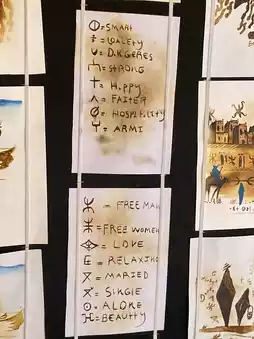 ⵀ=SMART
=WALETY
=DKGERES
=STRONG
= HAPPY
= FAITER
= HOSPITILITY
= ARMI
ⵣ = FREE MAN
= FREE WOMEN
= LOVE
= RELAXING
= MARIED
= SINGLE
ⵙ= ALONE
= BEAUTTY